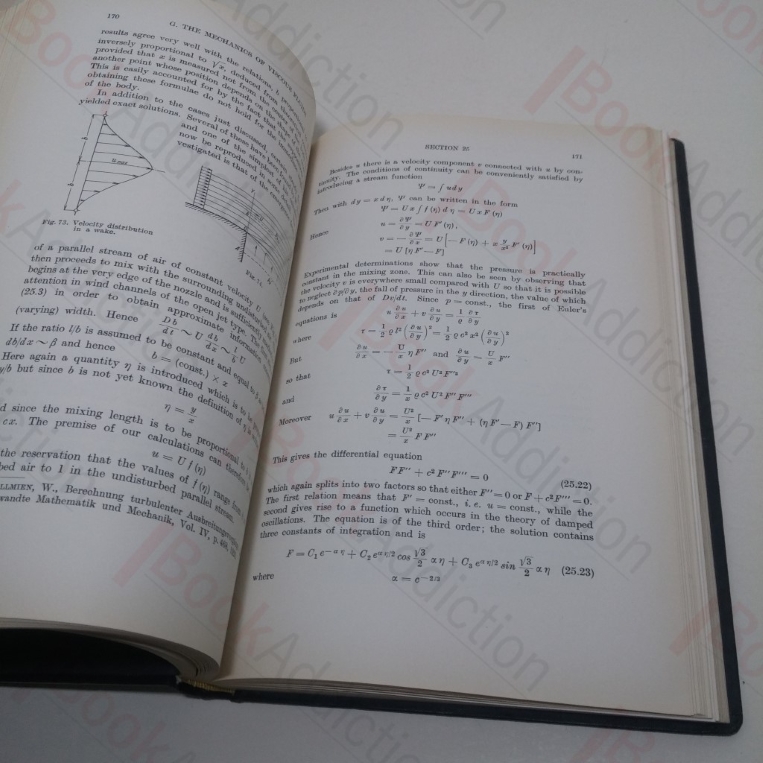 170
G. THE MECHANICS OF VISCOUS
results agree very well with the relations,
inversely proportional to √x, deduced from
provided that x is measured not from the
another point whose position depends on the
This is easily accounted for by the fact that the
obtaining these formulae do not hold for the
of the body.
In addition to the cases just discussed,
yielded exact solutions. Several of these have been
and one of the simplest
now be reproduced
vestigated is that of the
Fig. 73. Velocity distribution
in a wake.
Fig. 74.
of a parallel stream of air of constant velocity U
then proceeds to mix with the surrounding
begins at the very edge of the nozzle and is sufficient
attention in wind channels of the open jet type.
(25.3) in order to obtain approximate information
(varying) width. Hence Db/dt ~ U db/dx ~ l/b U
If the ratio l/b is assumed to be constant and equal to β
db/dx ~ β and hence
b = (const.) × x
Here again a quantity η is introduced which is to be
y/b but since b is not yet known the definition of
η = y/x
d since the mixing length is to be proportional to
cx. The premise of our calculations can therefore
u = U f (η)
the reservation that the values of f (η) range from
bed air to 1 in the undisturbed parallel stream.
LLMIEN, W., Berechnung turbulenter Ausbreitungsvorgänge,
wandte Mathematik und Mechanik, Vol. IV, p. 468,
SECTION 25
171
Besides u there is a velocity component v connected with u by con-
tinuity. The conditions of continuity can be conveniently satisfied by
introducing a stream function
Ψ = ∫ u dy
Thus with dy = x dη, Ψ can be written in the form
Ψ = U x ∫ f (η) d η = U x F (η)
u = ∂Ψ/∂y = U F′ (η),
Hence
v = − ∂Ψ/∂x = U [− F (η) + x y/x² F′ (η)]
= U [η F′ − F]
Experimental determinations show that the pressure is practically
constant in the mixing zone. This can also be seen by observing that
the velocity v is everywhere small compared with U so that it is possible
to neglect ∂p/∂y, the fall of pressure in the y direction, the value of which
depends on that of Dv/dt. Since p = const., the first of Euler's
equations is
u ∂u/∂x + v ∂u/∂y = 1/ϱ ∂τ/∂y
where
τ = 1/2 ϱ l² (∂u/∂y)² = 1/2 ϱ c² x² (∂u/∂y)²
But
∂u/∂x = − U/x η F″ and ∂u/∂y = U/x F″
so that
τ = 1/2 ϱ c² U² F″²
and
∂τ/∂y = 1/x ϱ c² U² F″ F‴
Moreover
u ∂u/∂x + v ∂u/∂y = U²/x [− F′ η F″ + (η F′ − F) F″]
= U²/x F F″
This gives the differential equation
F F″ + c² F″ F‴ = 0 (25.22)
which again splits into two factors so that either F″ = 0 or F + c² F‴ = 0.
The first relation means that F′ = const., i. e. u = const., while the
second gives rise to a function which occurs in the theory of damped
oscillations. The equation is of the third order; the solution contains
three constants of integration and is
F = C₁ e^−α η + C₂ e^α η/2 cos √3/2 α η + C₃ e^α η/2 sin √3/2 α η (25.23)
where
α = c^−2/3